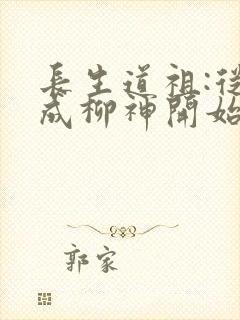 長生道祖:從
成柳神開始
郭家